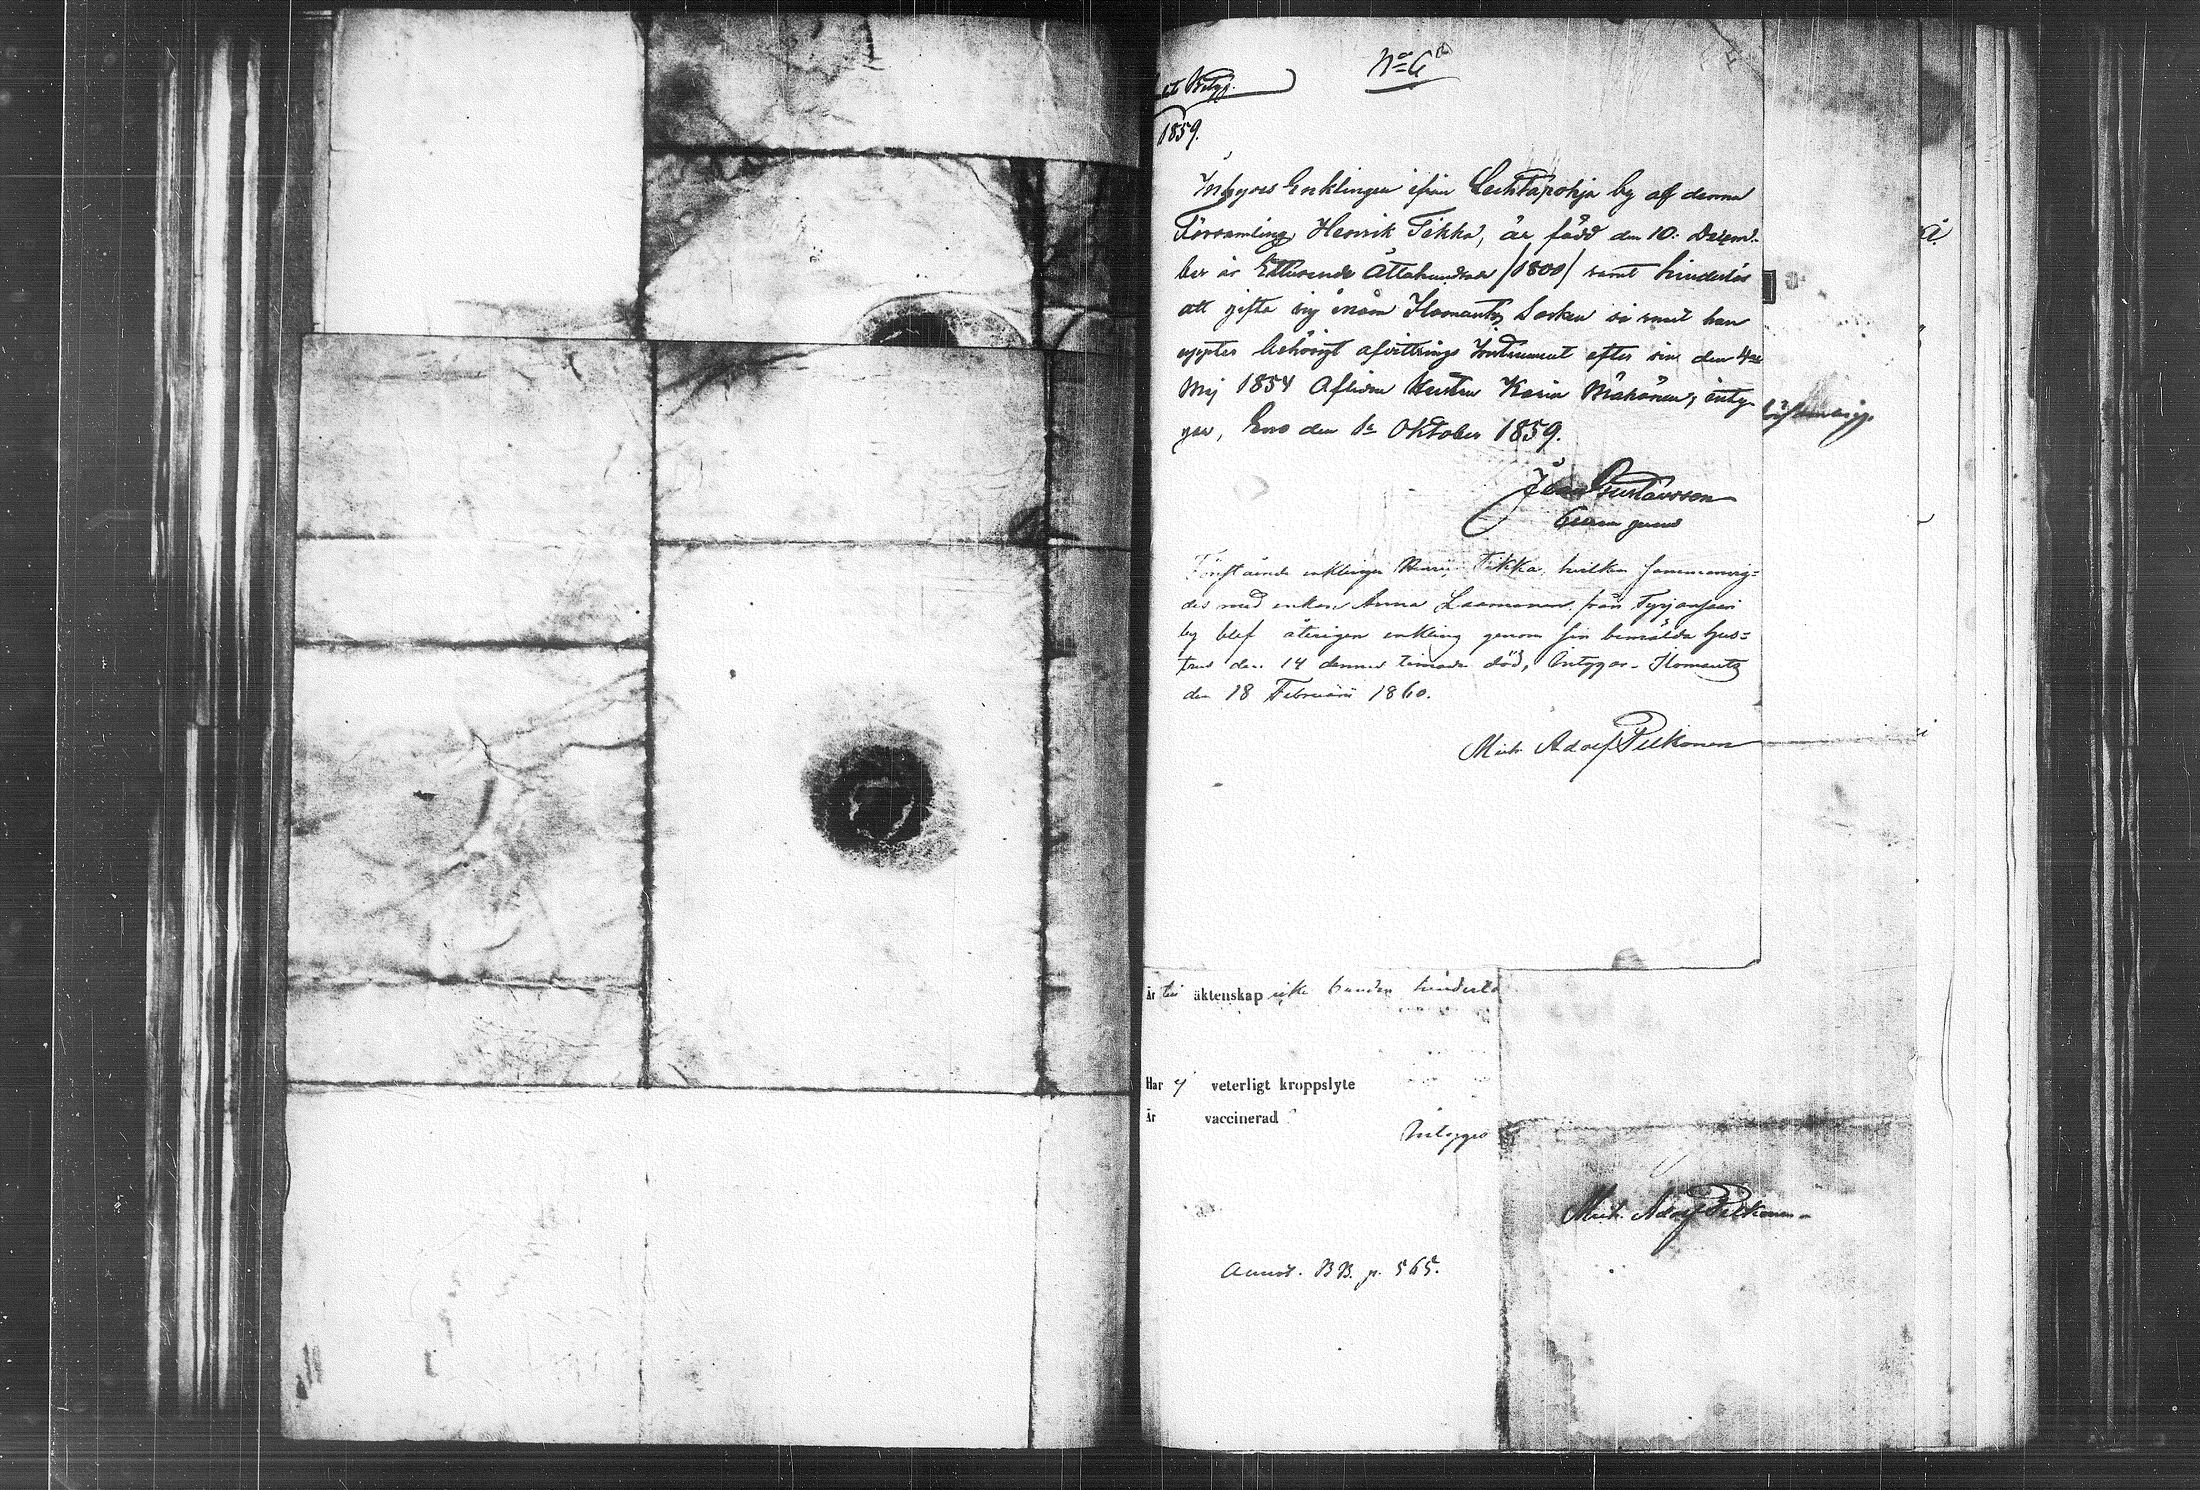 No 6
Betyg.
1859.
Inbyses Enklingen ifrån Lechtapohja by af denna
Församling, Henrik Tikka, är född den 10. Decem-
ber år Ettusende Åttahundrade /1800/ samt hinderlös
att gifta sig inom Ilomants Socken så snart han
uppter behörigt afvittrings Instrument efter sin den 4de
Maj 1854 Aflidna Hustru Karin Mähönen, inty-
gar, Eno den 1a Oktober 1859.
Johan Gustavsson
Förestående enklinge Henrik Tikka, hvilken sammanvig-
des med enkan Anna Laamanen från Tyrjänsaari
by blef återigen enkling genom sin bemälda hus-
trus den 14 dennes timade död, Intygas. Ilomants
den 18 Februarii 1860.
Mich. Adolf Pelkonen
Är till äktenskap icke bunden hinderlö
Har ej veterligt kroppslyte
Är vaccinerad
Intygas
Mich. Adolf Pelkonen
Annot. BB. p. 565.